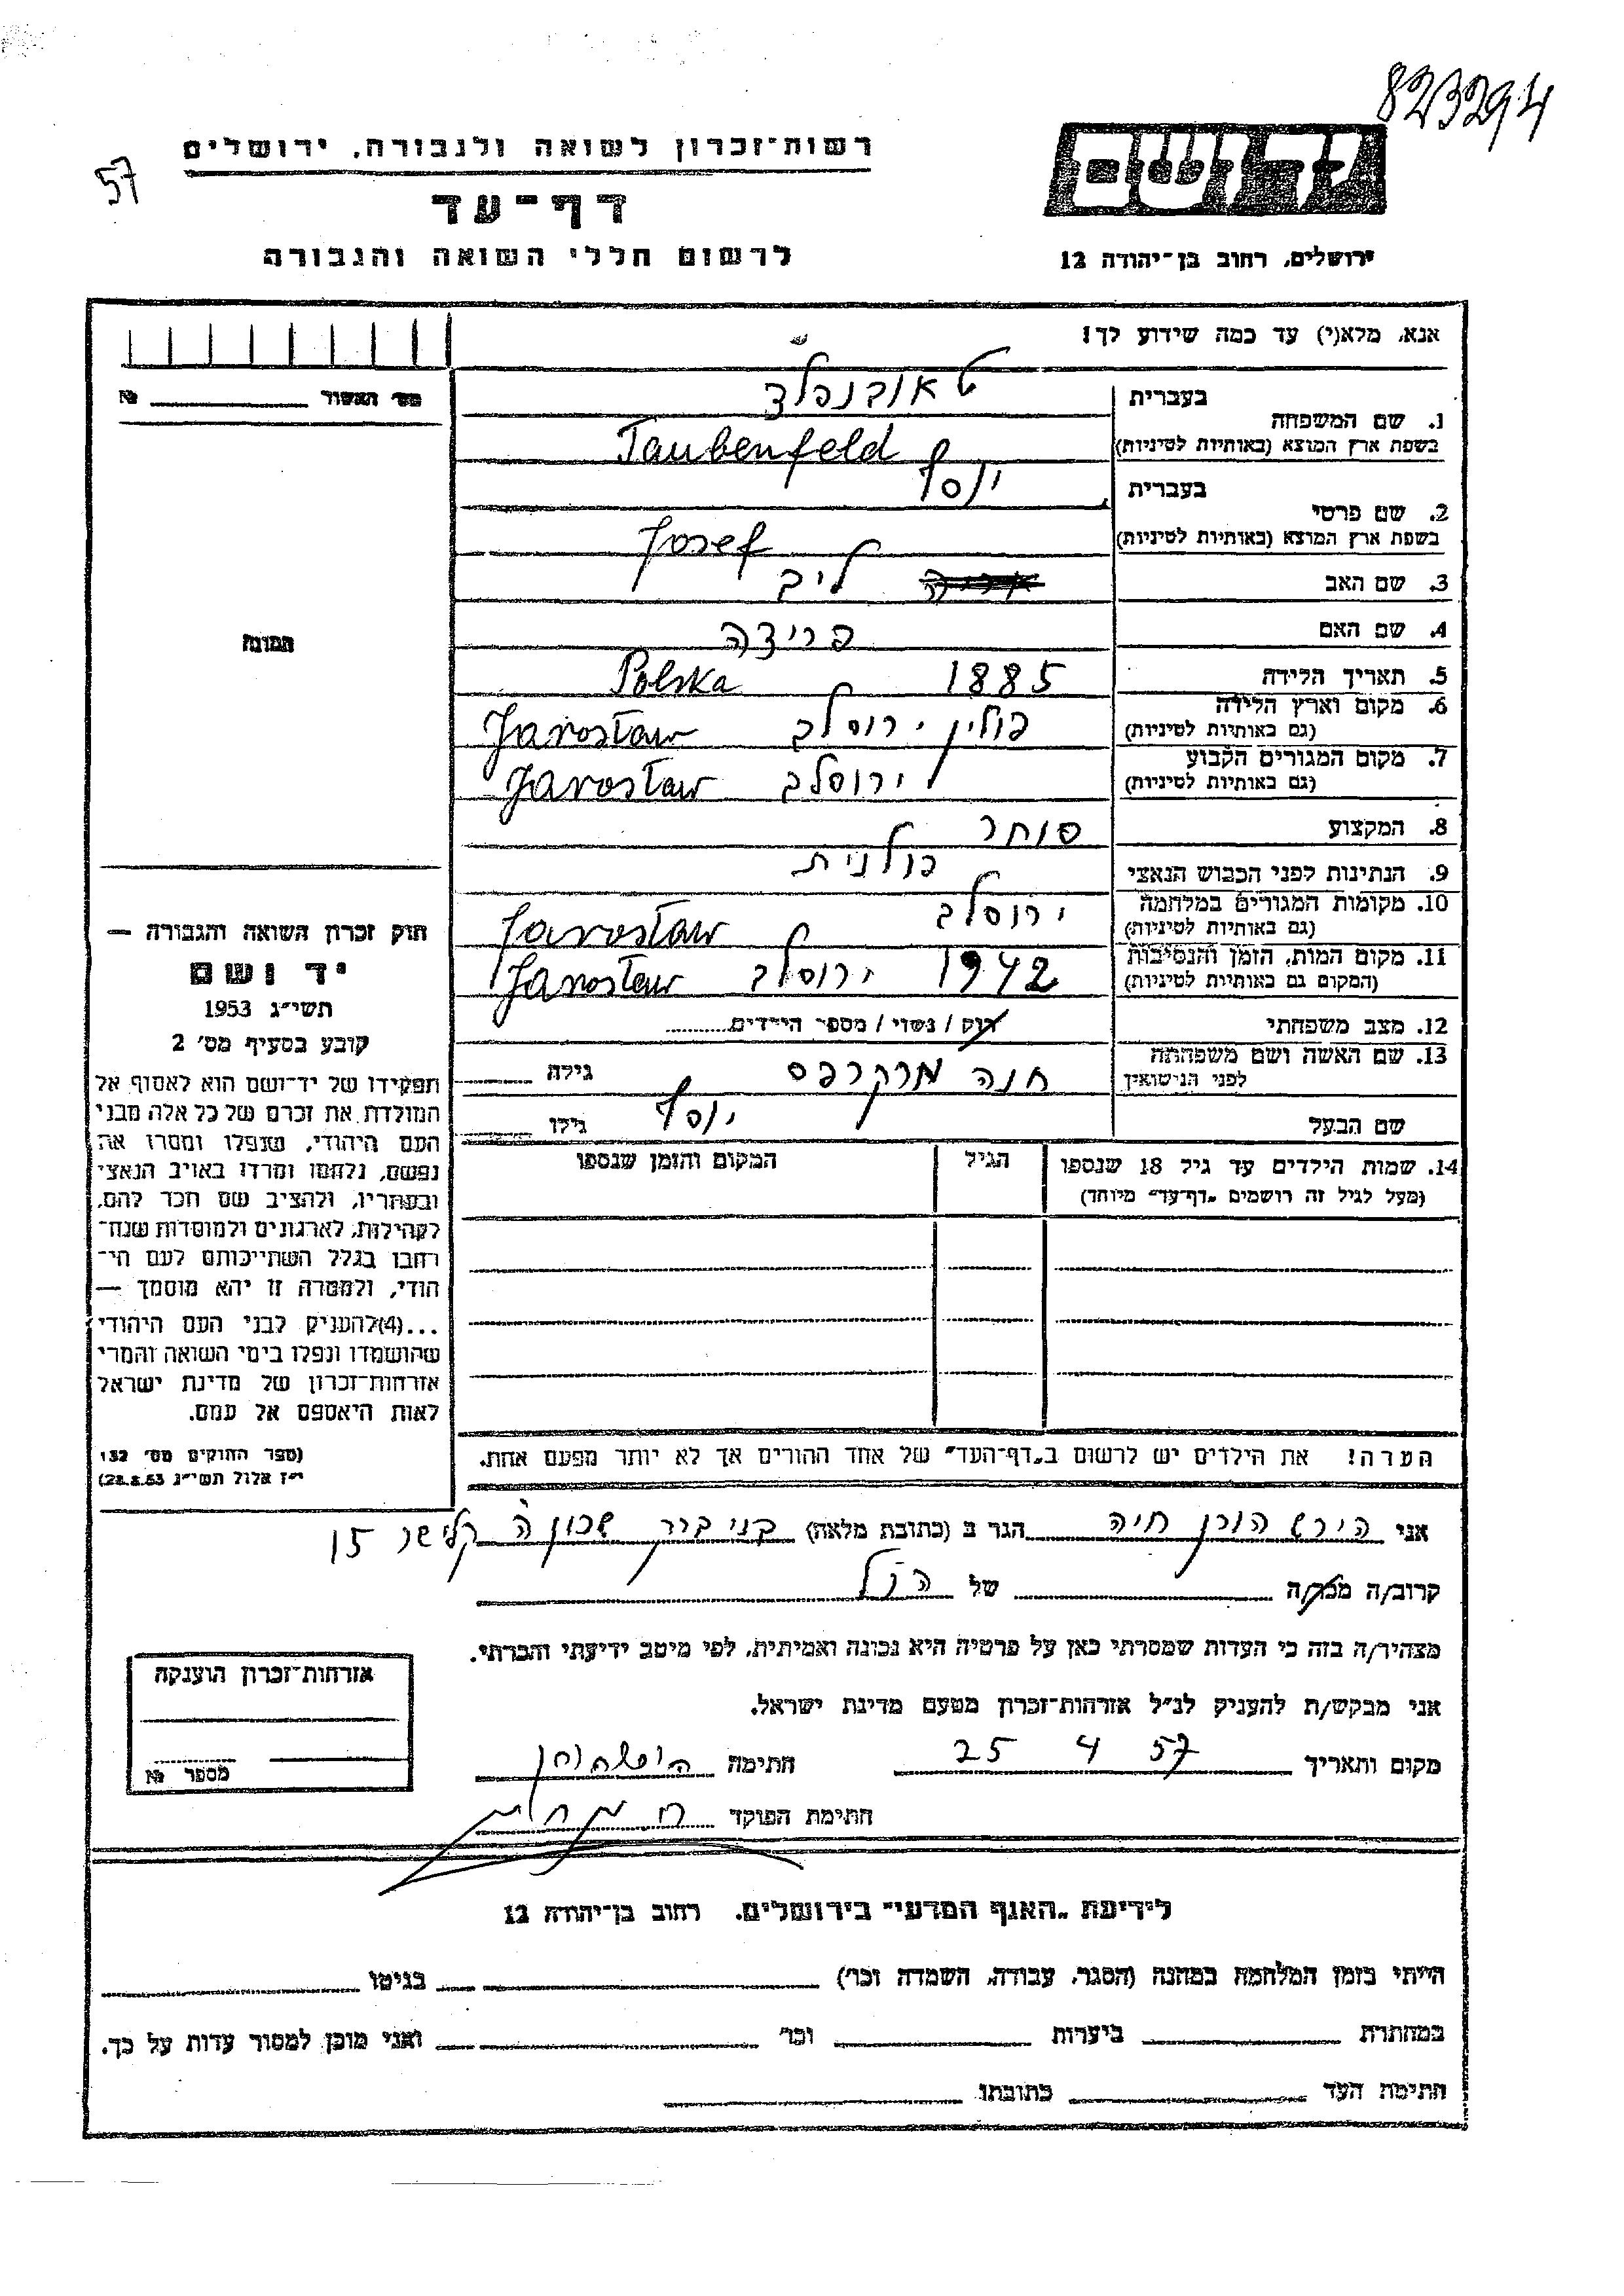 823294
57
יד ושם
רשות-זכרון לשואה ולגבורה, ירושלים
דף-עד
לרשום חללי השואה והגבורה
ירושלים, רחוב בן-יהודה 12
אנא, מלא(י) עד כמה שידוע לך!
מס' האשור №
1. שם המשפחה בעברית טאובנפלד
בשפת ארץ המוצא (באותיות לטיניות) Taubenfeld
2. שם פרטי בעברית יוסף
בשפת ארץ המוצא (באותיות לטיניות) Josef
3. שם האב ליב
4. שם האם פרידה
תמונה
5. תאריך הלידה 1885 Polska
6. מקום וארץ הלידה (גם באותיות לטיניות) פולין ירוסלב Jarosław
7. מקום המגורים הקבוע (גם באותיות לטיניות) ירוסלב Jarosław
8. המקצוע סוחר
9. הנתינות לפני הכבוש הנאצי פולנית
10. מקומות המגורים במלחמה (גם באותיות לטיניות) ירוסלב Jarosław
11. מקום המות, הזמן והנסיבות (המקום גם באותיות לטיניות) 1942 ירוסלב Jarosław
12. מצב משפחתי רוק / נשוי / מספר הילדים
13. שם האשה ושם משפחתה לפני הנישואין חנה מרקרפס גילה
שם הבעל יוסף גילו
14. שמות הילדים עד גיל 18 שנספו הגיל המקום והזמן שנספו
(מעל לגיל זה רושמים "דף-עד" מיוחד)
חוק זכרון השואה והגבורה —
יד ושם
תשי"ג 1953
קובע בסעיף מס' 2
תפקידו של יד-ושם הוא לאסוף אל
המולדת את זכרם של כל אלה מבני
העם היהודי, שנפלו ומסרו את
נפשם, נלחמו ומרדו באויב הנאצי
ובעוזריו, ולהציב שם וזכר להם,
לקהילות, לארגונים ולמוסדות שנח-
רבו בגלל השתייכותם לעם הי-
הודי, ולמטרה זו יהא מוסמך —
...(4)להעניק לבני העם היהודי
שהושמדו ונפלו בימי השואה והמרי
אזרחות-זכרון של מדינת ישראל
לאות היאספם אל עמם.
(ספר החוקים מס' 132
י"ז אלול תשי"ג 28.8.53)
הערה! את הילדים יש לרשום ב"דף-העד" של אחד ההורים אך לא יותר מפעם אחת.
אני הירשהורן חיה הגר ב (כתובת מלאה) בני ברק שכון ה' קלישר 15
קרוב/ה מכר/ה של הנ"ל
מצהיר/ה בזה כי העדות שמסרתי כאן על פרטיה היא נכונה ואמיתית, לפי מיטב ידיעתי והכרתי.
אני מבקש/ת להעניק לנ"ל אזרחות-זכרון מטעם מדינת ישראל.
מקום ותאריך 25 4 57 חתימה הירשהורן
חתימת הפוקד
אזרחות-זכרון הוענקה
מספר №
לידיעת "האגף המדעי" בירושלים. רחוב בן-יהודה 12
הייתי בזמן המלחמה במחנה (הסגר, עבודה, השמדה וכו') בגיטו
במחתרת ביערות וכו' ואני מוכן למסור עדות על כך.
חתימת העד כתובתו